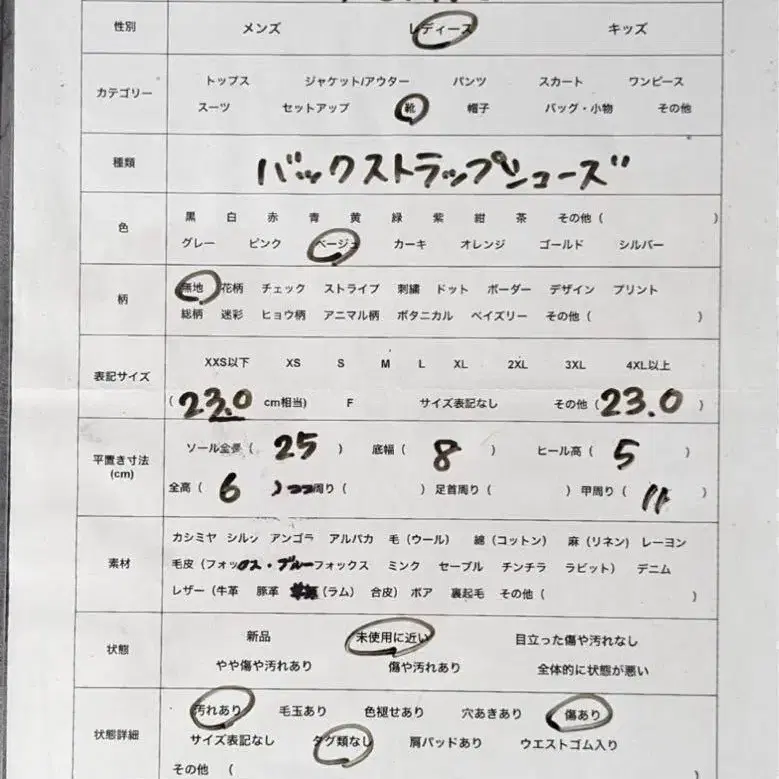 性別 メンズ レディース キッズ
カテゴリー
トップス ジャケット/アウター パンツ スカート ワンピース
スーツ セットアップ 靴 帽子 バッグ・小物 その他
種類 バックストラップシューズ
色
黒 白 赤 青 黄 緑 紫 紺 茶 その他 ( )
グレー ピンク ベージュ カーキ オレンジ ゴールド シルバー
柄
無地 花柄 チェック ストライプ 刺繍 ドット ボーダー デザイン プリント
総柄 迷彩 ヒョウ柄 アニマル柄 ボタニカル ペイズリー その他 ( )
表記サイズ
XXS以下 XS S M L XL 2XL 3XL 4XL以上
( 23.0 cm相当) F サイズ表記なし その他 ( 23.0 )
平置き寸法
(cm)
ソール全長 ( 25 ) 底幅 ( 8 ) ヒール高 ( 5 )
全高 ( 6 ) 周り ( ) 足首周り ( ) 甲周り ( 11 )
素材
カシミヤ シルク アンゴラ アルパカ 毛 (ウール) 綿 (コットン) 麻 (リネン) レーヨン
毛皮 (フォックス・ブルーフォックス ミンク セーブル チンチラ ラビット) デニム
レザー (牛革 豚革 (ラム) 合皮) ボア 裏起毛 その他 ( )
状態
新品 未使用に近い 目立った傷や汚れなし
やや傷や汚れあり 傷や汚れあり 全体的に状態が悪い
状態詳細
汚れあり 毛玉あり 色褪せあり 穴あきあり 傷あり
サイズ表記なし タグ類なし 肩パッドあり ウエストゴム入り
その他 ( )